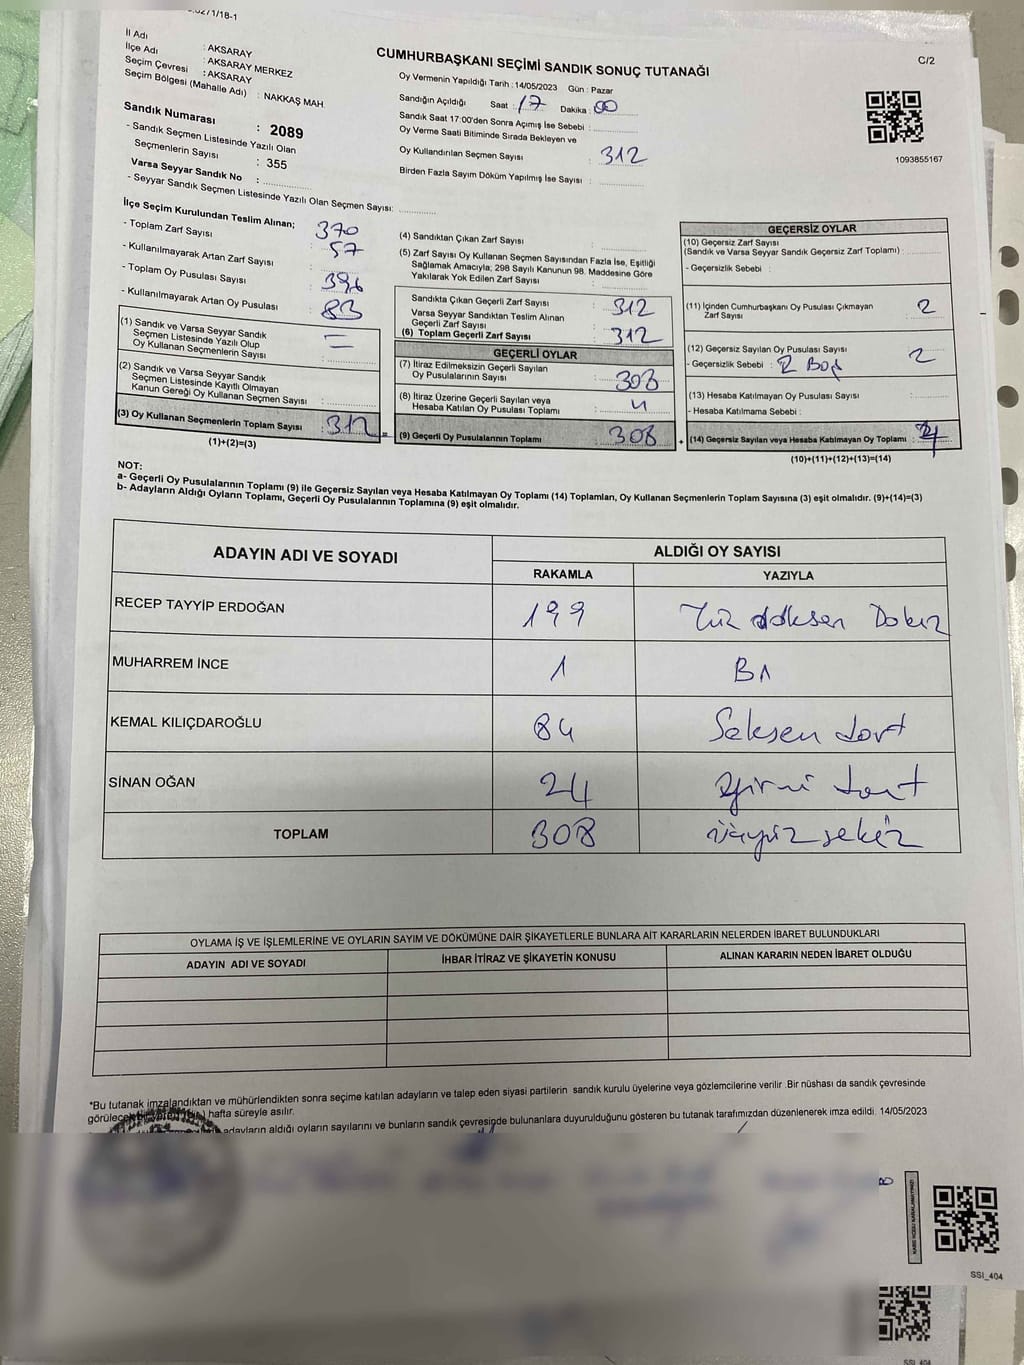 İl Adı : AKSARAY
İlçe Adı : AKSARAY MERKEZ
Seçim Çevresi : AKSARAY
Seçim Bölgesi (Mahalle Adı) : NAKKAŞ MAH
Sandık Numarası : 2089
- Sandık Seçmen Listesinde Yazılı Olan
Seçmenlerin Sayısı : 355
Varsa Seyyar Sandık No :
- Seyyar Sandık Seçmen Listesinde Yazılı Olan Seçmen Sayısı:
CUMHURBAŞKANI SEÇİMİ SANDIK SONUÇ TUTANAĞI
C/2
Oy Vermenin Yapıldığı Tarih : 14/05/2023 Gün : Pazar
Sandığın Açıldığı Saat : 17 Dakika : 00
Sandık Saat 17:00'den Sonra Açımış İse Sebebi :
Oy Verme Saati Bitiminde Sırada Bekleyen ve
Oy Kullandırılan Seçmen Sayısı : 312
Birden Fazla Sayım Döküm Yapılmış İse Sayısı :
1093855167
İlçe Seçim Kurulundan Teslim Alınan;
- Toplam Zarf Sayısı : 370
- Kullanılmayarak Artan Zarf Sayısı : 57
- Toplam Oy Pusulası Sayısı : 396
- Kullanılmayarak Artan Oy Pusulası : 83
(1) Sandık ve Varsa Seyyar Sandık
Seçmen Listesinde Yazılı Olup
Oy Kullanan Seçmenlerin Sayısı : =
(2) Sandık ve Varsa Seyyar Sandık
Seçmen Listesinde Kayıtlı Olmayan
Kanun Gereği Oy Kullanan Seçmen Sayısı :
(3) Oy Kullanan Seçmenlerin Toplam Sayısı : 312
(1)+(2)=(3)
(4) Sandıktan Çıkan Zarf Sayısı :
(5) Zarf Sayısı Oy Kullanan Seçmen Sayısından Fazla İse, Eşitliği
Sağlamak Amacıyla; 298 Sayılı Kanunun 98. Maddesine Göre
Yakılarak Yok Edilen Zarf Sayısı :
Sandıkta Çıkan Geçerli Zarf Sayısı : 312
Varsa Seyyar Sandıktan Teslim Alınan
Geçerli Zarf Sayısı :
(6) Toplam Geçerli Zarf Sayısı : 312
GEÇERLİ OYLAR
(7) İtiraz Edilmeksizin Geçerli Sayılan
Oy Pusulalarının Sayısı : 303
(8) İtiraz Üzerine Geçerli Sayılan veya
Hesaba Katılan Oy Pusulası Toplamı : 4
(9) Geçerli Oy Pusulalarının Toplamı : 308
GEÇERSİZ OYLAR
(10) Geçersiz Zarf Sayısı
(Sandık ve Varsa Seyyar Sandık Geçersiz Zarf Toplamı) :
- Geçersizlik Sebebi :
(11) İçinden Cumhurbaşkanı Oy Pusulası Çıkmayan
Zarf Sayısı : 2
(12) Geçersiz Sayılan Oy Pusulası Sayısı : 2
- Geçersizlik Sebebi : 2 Boş
(13) Hesaba Katılmayan Oy Pusulası Sayısı :
- Hesaba Katılmama Sebebi :
+ (14) Geçersiz Sayılan veya Hesaba Katılmayan Oy Toplamı : 4
(10)+(11)+(12)+(13)=(14)
NOT:
a- Geçerli Oy Pusulalarının Toplamı (9) ile Geçersiz Sayılan veya Hesaba Katılmayan Oy Toplamı (14) Toplamları, Oy Kullanan Seçmenlerin Toplam Sayısına (3) eşit olmalıdır. (9)+(14)=(3)
b- Adayların Aldığı Oyların Toplamı, Geçerli Oy Pusulalarının Toplamına (9) eşit olmalıdır.
ADAYIN ADI VE SOYADI ALDIĞI OY SAYISI
RAKAMLA YAZIYLA
RECEP TAYYİP ERDOĞAN 199 Yüz doksen Dokuz
MUHARREM İNCE 1 Bir
KEMAL KILIÇDAROĞLU 84 Seksen dört
SİNAN OĞAN 24 yirmi dört
TOPLAM 308 üçyüz sekiz
OYLAMA İŞ VE İŞLEMLERİNE VE OYLARIN SAYIM VE DÖKÜMÜNE DAİR ŞİKAYETLERLE BUNLARA AİT KARARLARIN NELERDEN İBARET BULUNDUKLARI
ADAYIN ADI VE SOYADI İHBAR İTİRAZ VE ŞİKAYETİN KONUSU ALINAN KARARIN NEDEN İBARET OLDUĞU
*Bu tutanak imzalandıktan ve mühürlendikten sonra seçime katılan adayların ve talep eden siyasi partilerin sandık kurulu üyelerine veya gözlemcilerine verilir .Bir nüshası da sandık çevresinde
hafta süreyle asılır.
adayların aldığı oyların sayılarını ve bunların sandık çevresinde bulunanlara duyurulduğunu gösteren bu tutanak tarafımızdan düzenlenerek imza edildi. 14/05/2023
SSI_404
SSI_404